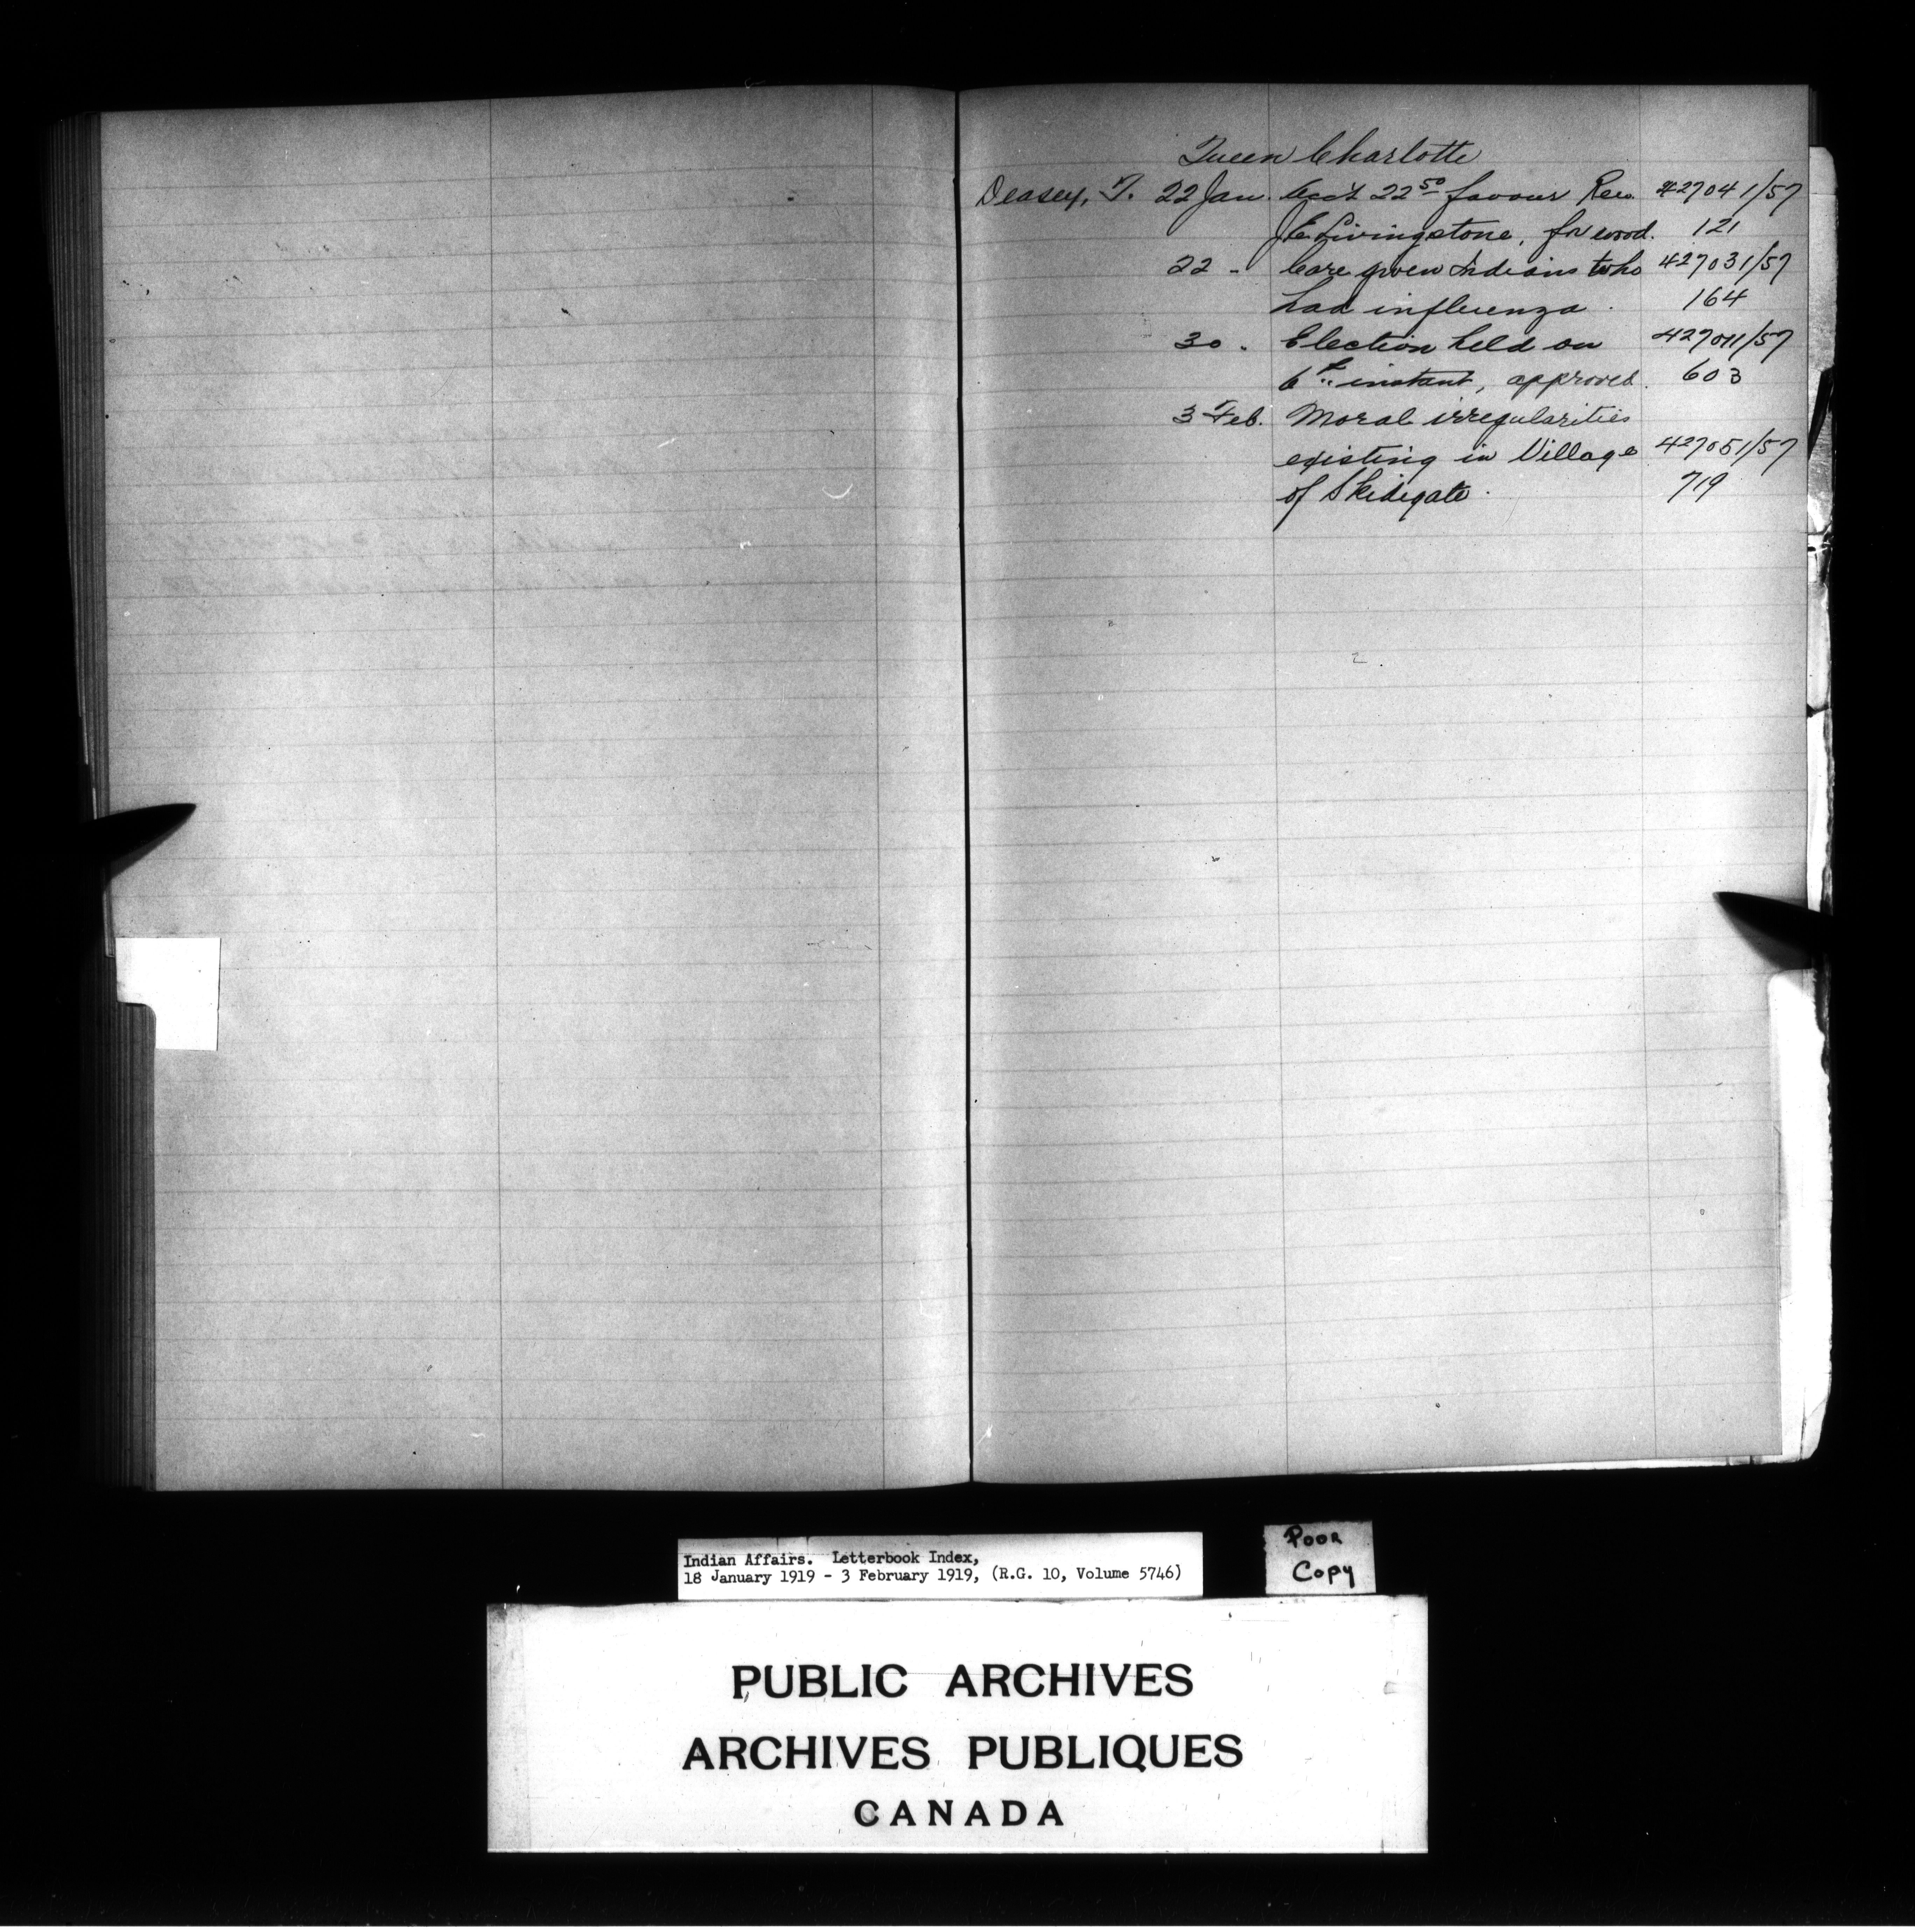 Queen Charlotte
Deasey, T. 22 Jan. Acc't 22 50 favour Rev. 427041/57
J. E. Livingstone, for wood. 121
22 " Care given Indians who 427031/57
had influenza. 164
30 " Election held on 427011/57
6th instant, approved. 603
3 Feb. Moral irregularities
existing in Village 427051/57
of Skidegate. 719
Indian Affairs. Letterbook Index,
18 January 1919 - 3 February 1919, (R.G. 10, Volume 5746)
POOR
COPY
PUBLIC ARCHIVES
ARCHIVES PUBLIQUES
CANADA